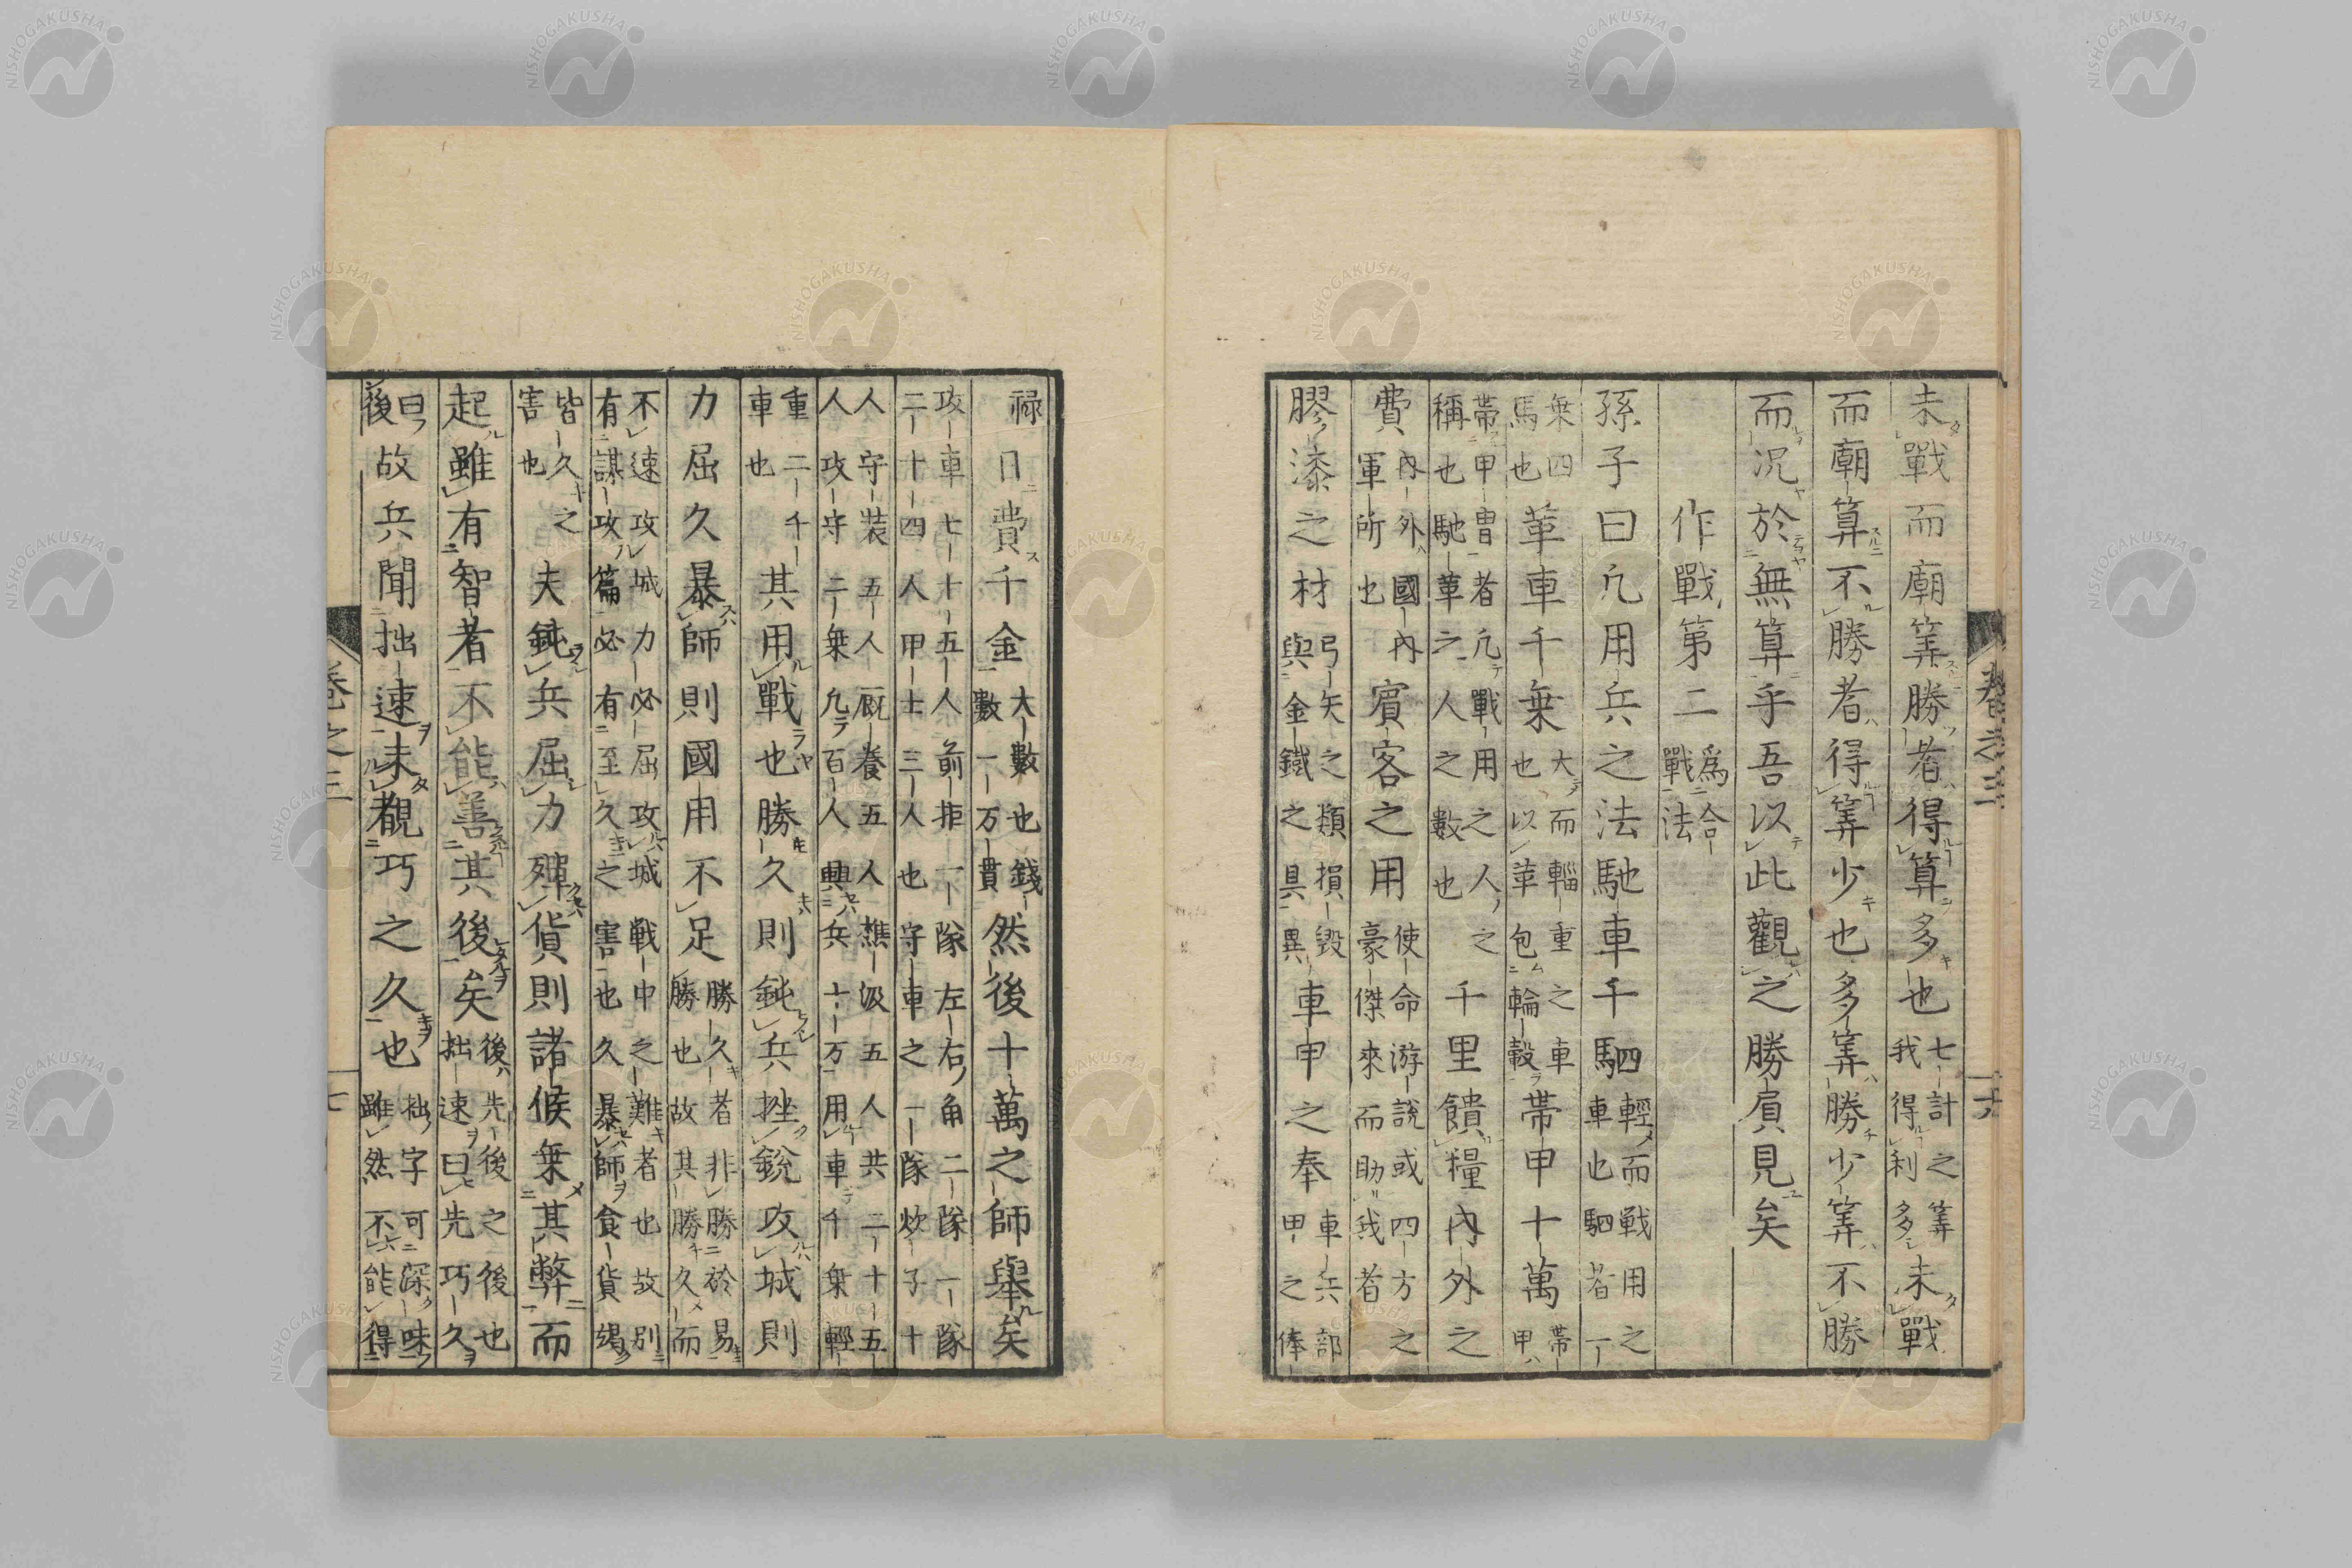 未戰而廟筭勝者得算多也七計之筭我得利多未戰
而廟算不勝者得筭少也多筭勝少筭不勝
而況於無算乎吾以此觀之勝負見矣
作戰第二為合戰法
孫子曰凢用兵之法馳車千駟輕而戦用之車也駟者一
乗四馬也革車千乗大而輜重之車也以革包輪轂帯甲十萬帯甲
帯甲冑者凢戰用之人之稱也馳革之人之數也千里饋糧内外之
費内外國内軍所也賓客之用使命游説或四方之豪傑來而助我者
膠漆之材弓矢之類損毀與金鐵之具異車甲之奉車兵部甲之俸
卷之三
十六
禄日費千金大數也錢數一万貫然後十萬之師舉矣
攻車七十五人前拒一隊左右角二隊一隊二十四人甲士三人也守車之一隊炊子十
人守装五人厩養五人樵汲五人共二十五人攻守二乗凢百人興兵十万用車千乗輕
重二千車也其用戰也勝久則鈍兵挫鋭攻城則
力屈久暴師則國用不足勝久者非勝於易勝也故其勝久而
不速攻城力必屈攻城戦中之難者也故別有謀攻篇必有至久之害也久暴師食貨竭
皆久之害也夫鈍兵屈力殫貨則諸候乗其弊而
起雖有智者不能善其後矣後先後之後也拙速曰先巧久
曰後故兵聞拙速未覩巧之久也拙字可深味雖然不能得
卷之三